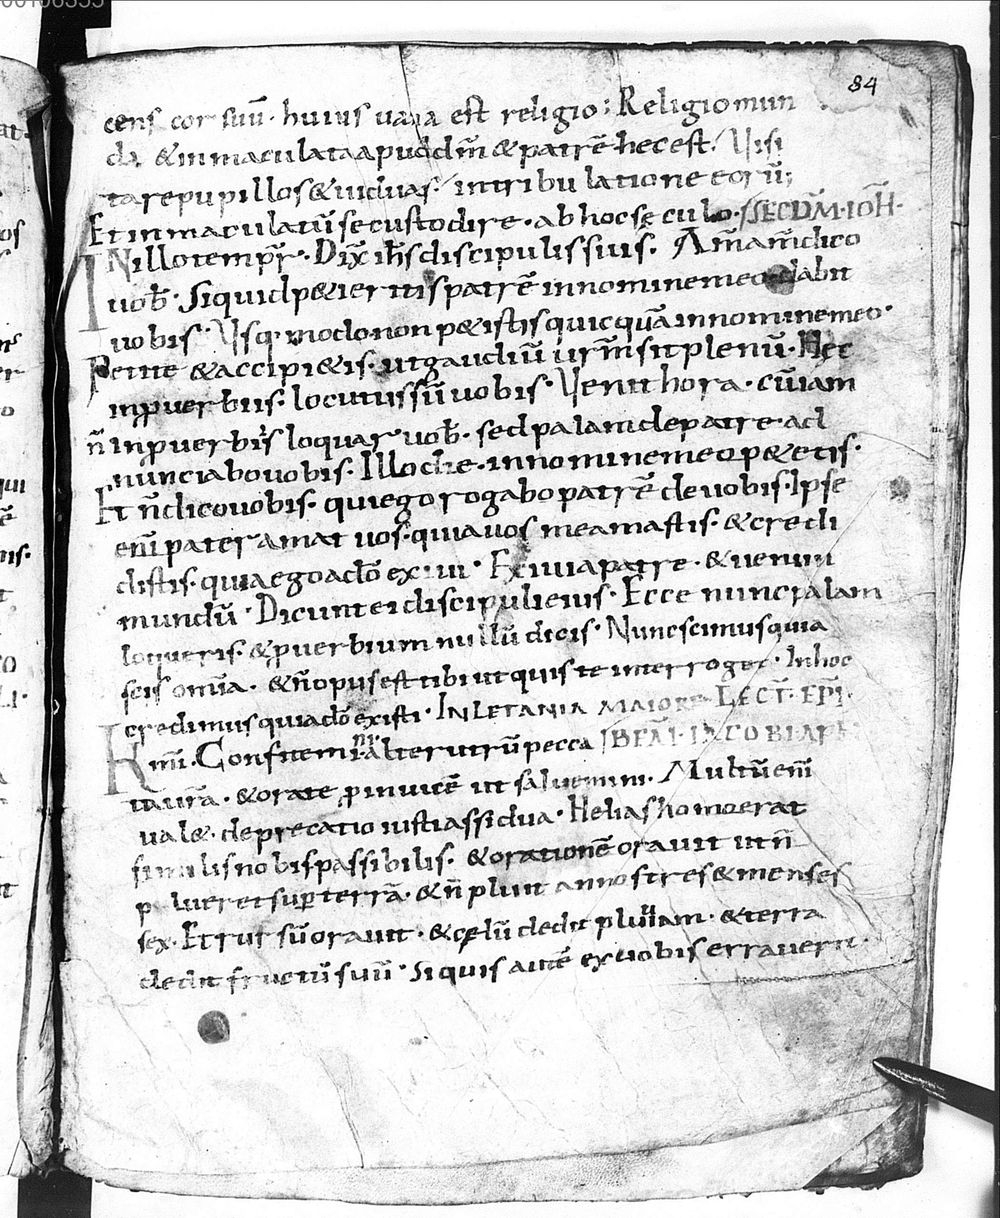 84
cens cor suū· huius vana est religio; Religio mun
da & inmaculata apud dm̄ & patrē hec est. Visi
tare pupillos & viduas· in tribulatione eorū;
Et inmaculatū se custodire· ab hoc sęculo· SECDM̄· IOH̄·
IN illo tempr̄· Dix̄ ihs̄ discipulis suis· Am̄ am̄ dico
vob̄· Si quid p&ieritis patrē in nomine meo dabit
vobis· Vsq· modo non p&istis quicquā in nomine meo·
Petite & accipi&is· ut gaudiū urm̄ sit plenū· Hec
in pverbiis· locutus sū vobis· Venit hora· cū iam
n̄ in pverbiis loquar vob̄· sed palam de patre· ad
nunciabo vobis· Illo die· in nomine meo p&etis·
Et n̄ dico vobis· qui ego rogabo patrē de vobis· Ipse
eni pater amat vos· quia vos me amastis· & credi
distis· quia ego a dō exivi· Exivi a patre· & veni in
mundū· Dicunt ei discipuli eius· Ecce nunc palam
loqueris· & pverbium nullū dicis· Nunc scimus quia
scis omīa· & n̄ opus est tibi ut quis te interroget· In hoc
credimus quia a dō existi· IN LETANIA MAIORE LECT̄· EPĪ·
Kmī· Confitemini alterutrū pecca BEATI· IACOBI APLI
ta vr̄a· & orate p invicē ut salvemini· Multū eni
val&· deprecatio iusti assidua· Helias homo erat
similis nobis passibilis· & orationē oravit ut n̄
plueret sup terrā· & n̄ pluit annos tres & menses
sex· Et rursū oravit· & cęlū dedit pluviam· & terra
dedit fructū suū· Si quis autē ex vobis erraverit·